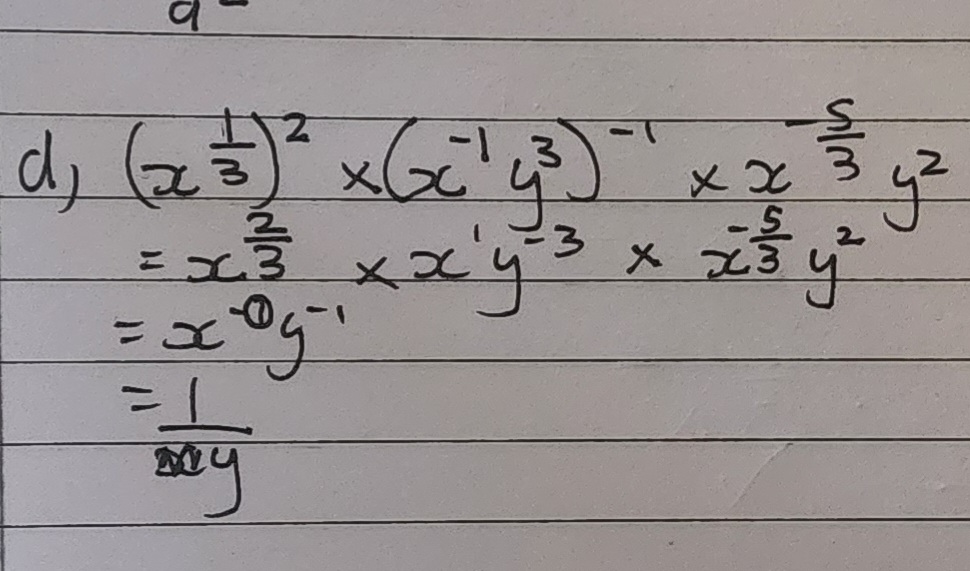 d) (x^(1/3))^2 × (x^-1 y^3)^-1 × x^(-5/3) y^2
= x^(2/3) × x^1 y^-3 × x^(-5/3) y^2
= x^0 y^-1
= 1/y